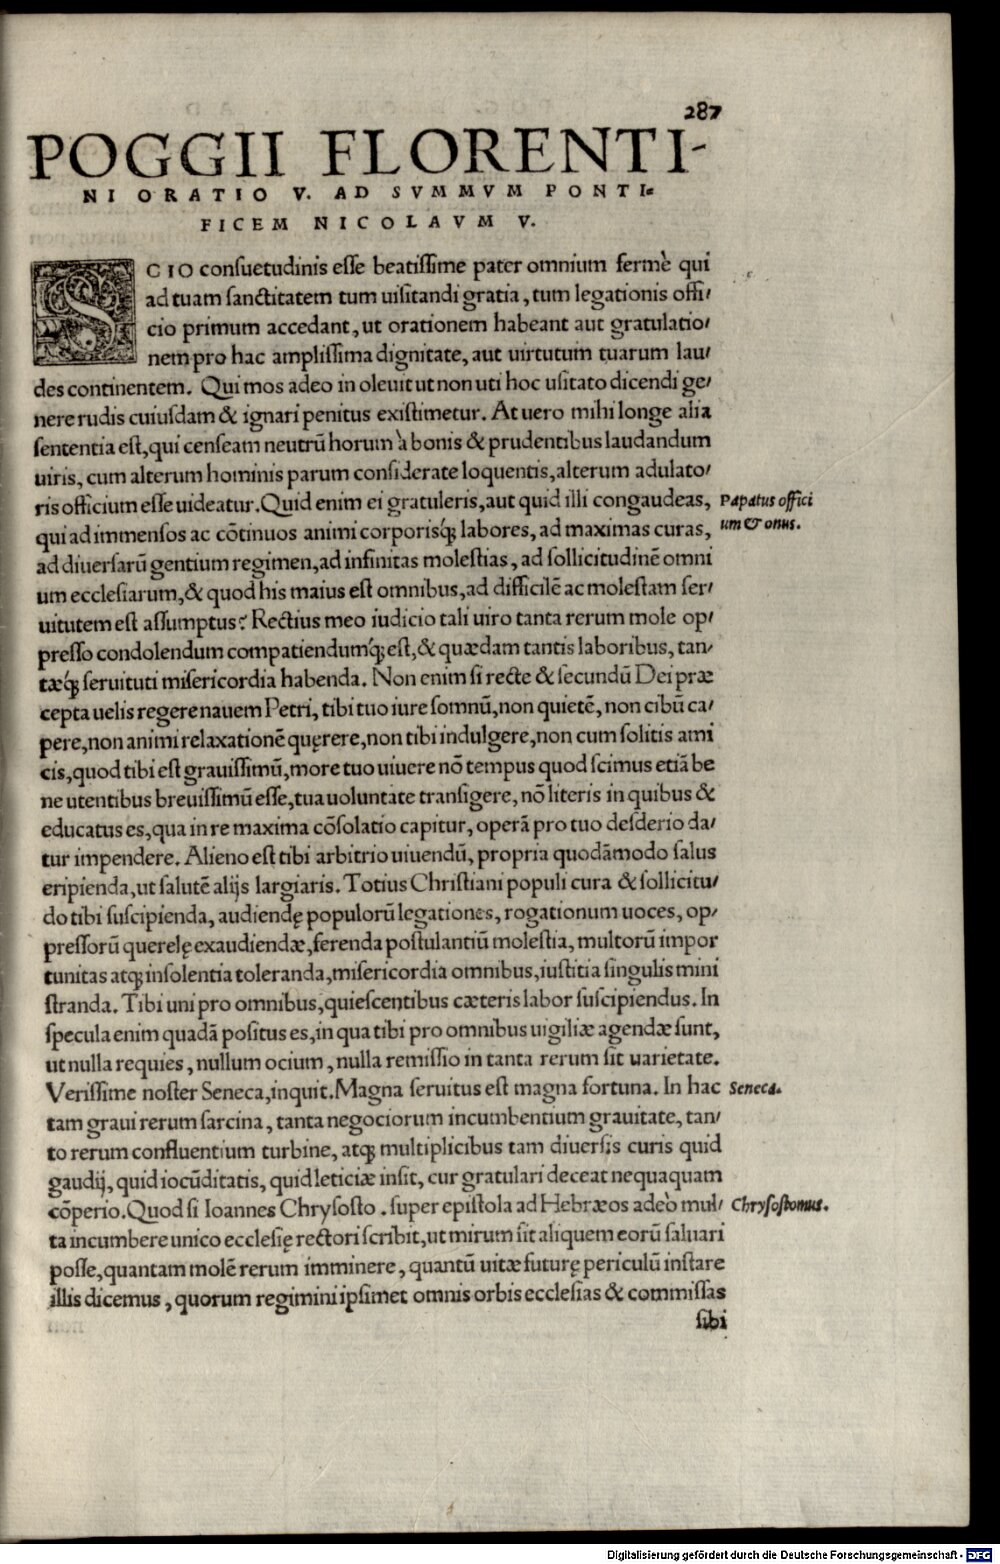 287
POGGII FLORENTI-
NI ORATIO V. AD SVMMVM PONTI=
FICEM NICOLAVM V.
SCIO consuetudinis esse beatissime pater omnium fermè qui
ad tuam sanctitatem tum uisitandi gratia, tum legationis offi/
cio primum accedant, ut orationem habeant aut gratulatio/
nem pro hac amplissima dignitate, aut uirtutum tuarum lau/
des continentem. Qui mos adeo in oleuit ut non uti hoc usitato dicendi ge/
nere rudis cuiusdam & ignari penitus existimetur. At uero mihi longe alia
sententia est, qui censeam neutrũ horum à bonis & prudentibus laudandum
uiris, cum alterum hominis parum considerate loquentis, alterum adulato/
ris officium esse uideatur. Quid enim ei gratuleris, aut quid illi congaudeas,
Papatus offici
um & onus.
qui ad immensos ac cõtinuos animi corporisq́; labores, ad maximas curas,
ad diuersarũ gentium regimen, ad infinitas molestias, ad sollicitudinẽ omni
um ecclesiarum, & quod his maius est omnibus, ad difficilẽ ac molestam ser/
uitutem est assumptus? Rectius meo iudicio tali uiro tanta rerum mole op/
presso condolendum compatiendumq́; est, & quædam tantis laboribus, tan/
tæq́; seruituti misericordia habenda. Non enim si recte & secundũ Dei præ
cepta uelis regere nauem Petri, tibi tuo iure somnũ, non quietẽ, non cibũ ca/
pere, non animi relaxationẽ quęrere, non tibi indulgere, non cum solitis ami
cis, quod tibi est grauissimũ, more tuo uiuere nõ tempus quod scimus etiã be
ne utentibus breuissimũ esse, tua uoluntate transigere, nõ literis in quibus &
educatus es, qua in re maxima cõsolatio capitur, operã pro tuo desderio da/
tur impendere. Alieno est tibi arbitrio uiuendũ, propria quodãmodo salus
eripienda, ut salutẽ alijs largiaris. Totius Christiani populi cura & sollicitu/
do tibi suscipienda, audiendę populorũ legationes, rogationum uoces, op/
pressorũ querelę exaudiendæ, ferenda postulantiũ molestia, multorũ impor
tunitas atq; insolentia toleranda, misericordia omnibus, iustitia singulis mini
stranda. Tibi uni pro omnibus, quiescentibus cæteris labor suscipiendus. In
specula enim quadã positus es, in qua tibi pro omnibus uigiliæ agendæ sunt,
ut nulla requies, nullum ocium, nulla remissio in tanta rerum sit uarietate.
Verissime noster Seneca, inquit. Magna seruitus est magna fortuna. In hac
Seneca.
tam graui rerum sarcina, tanta negociorum incumbentium grauitate, tan/
to rerum confluentium turbine, atq; multiplicibus tam diuersis curis quid
gaudij, quid iocũditatis, quid leticiæ insit, cur gratulari deceat nequaquam
cõperio. Quod si Ioannes Chrysosto. super epistola ad Hebræos adeò mul/
Chrysostomus.
ta incumbere unico ecclesię rectori scribit, ut mirum sit aliquem eorũ saluari
posse, quantam molẽ rerum imminere, quantũ uitæ futurę periculũ instare
illis dicemus, quorum regimini ipsimet omnis orbis ecclesias & commissas
sibi
Digitalisierung gefördert durch die Deutsche Forschungsgemeinschaft - DFG